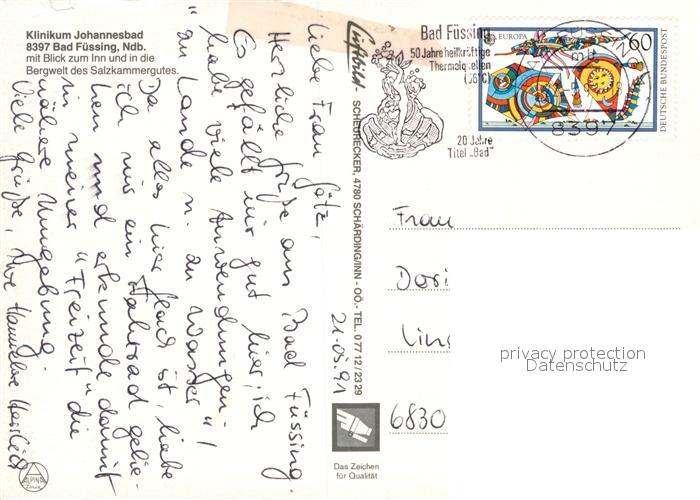 Klinikum Johannesbad
8397 Bad Füssing, Ndb.
mit Blick zum Inn und in die
Bergwelt des Salzkammergutes.
Liebe Frau Götz,
Herzliche Grüße aus Bad Füssing.
Es gefällt mir gut hier, ich
habe viele Anwendungen -
"zu Lande u. zu Wasser"!
Da alles hier flach ist, habe
ich mir ein Fahrrad gelie-
hen und erkunde damit
in meiner "Freizeit" die
nähere Umgebung.
Viele Grüße, Ihre Hannelore
ALPINA
Luftbild
SCHEURECKER, 4780 SCHÄRDING/INN - OÖ.- TEL. 0 77 12 / 23 29
21.05.91
Das Zeichen
für Qualität
Bad Füssing
50 Jahre heilkräftige
Thermalquellen
(56°C)
20 Jahre
Titel „Bad"
8397
EUROPA
60
DEUTSCHE BUNDESPOST
Frau
Dori
Lin
6830
privacy protection
Datenschutz